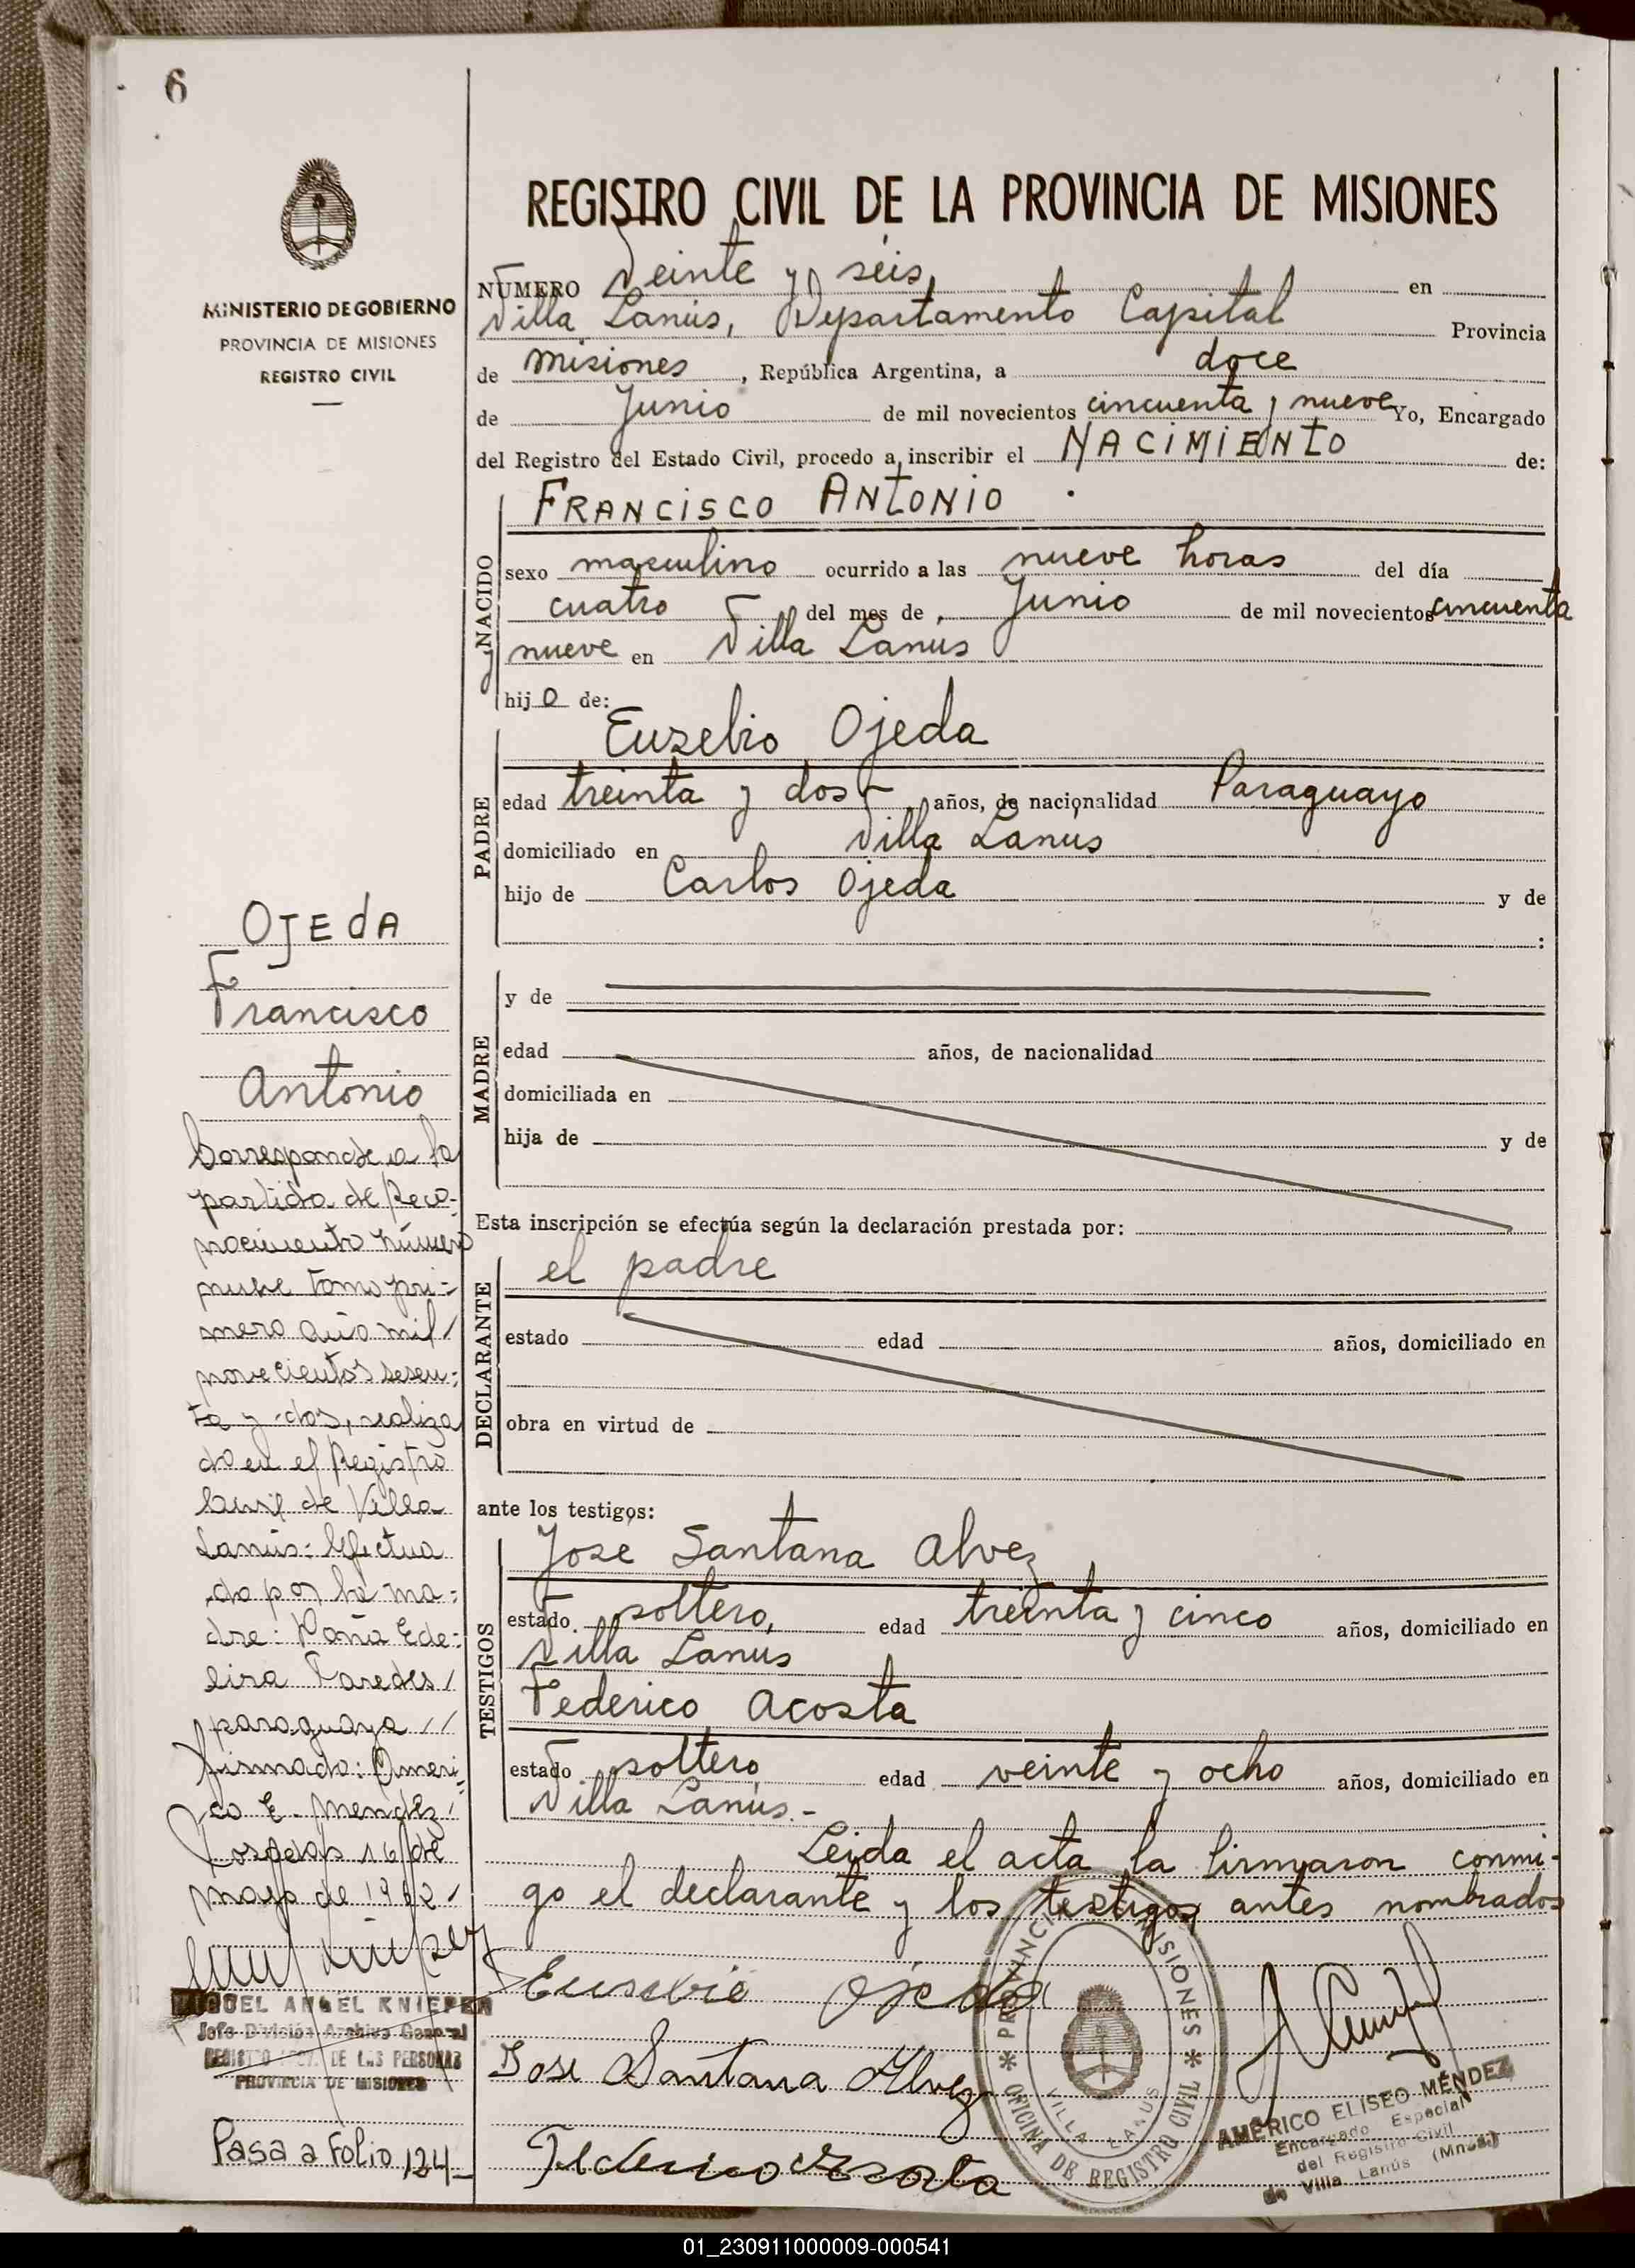 6
MINISTERIO DE GOBIERNO
PROVINCIA DE MISIONES
REGISTRO CIVIL
REGISTRO CIVIL DE LA PROVINCIA DE MISIONES
NUMERO Veinte y séis, en
Villa Lanús, Departamento Capital Provincia
de Misiones, República Argentina, a doce
de Junio de mil novecientos cincuenta y nueve Yo, Encargado
del Registro del Estado Civil, procedo a inscribir el NACIMIENTO de:
NACIDO
FRANCISCO ANTONIO
sexo masculino ocurrido a las nueve horas del día
cuatro del mes de Junio de mil novecientos cincuenta
y nueve en Villa Lanús
hijo de:
PADRE
Euzebio Ojeda
edad treinta y dos años, de nacionalidad Paraguayo
domiciliado en Villa Lanús
hijo de Carlos Ojeda y de
:
MADRE
y de
edad años, de nacionalidad
domiciliada en
hija de y de
Esta inscripción se efectúa según la declaración prestada por:
DECLARANTE
el padre
estado edad años, domiciliado en
obra en virtud de
ante los testigos:
TESTIGOS
José Santana Alvez
estado soltero, edad treinta y cinco años, domiciliado en
Villa Lanus
Federico Acosta
estado soltero edad veinte y ocho años, domiciliado en
Villa Lanús.-
Leida el acta la firmaron conmi-
go el declarante y los testigos antes nombrados
Eusebio Ojeda
Jose Santana Alvez
Federico Acosta
PROVINCIA MISIONES
OFICINA DE REGISTRO CIVIL
VILLA LANUS
AMÉRICO ELISEO MÉNDEZ
Encargado Especial
del Registro Civil
de Villa Lanús (Mnes.)
OJEDA
Francisco
Antonio
Corresponde a la
partida de Reco-
nocimiento número
nueve tomo pri-
mero año mil
novecientos sesen-
ta y dos, realiza
do en el Registro
Civil de Villa
Lanús: Efectua
do por la ma-
dre: Doña Ede-
lira Paredes
paraguaya
firmado: Ameri-
co E. Mendez
Posadas 16 de
mayo de 1962
MIGUEL ANGEL KNIEPER
Jefe División Archivo General
REGISTRO PROV. DE LAS PERSONAS
PROVINCIA DE MISIONES
Pasa a Folio 124-
01_230911000009-000541